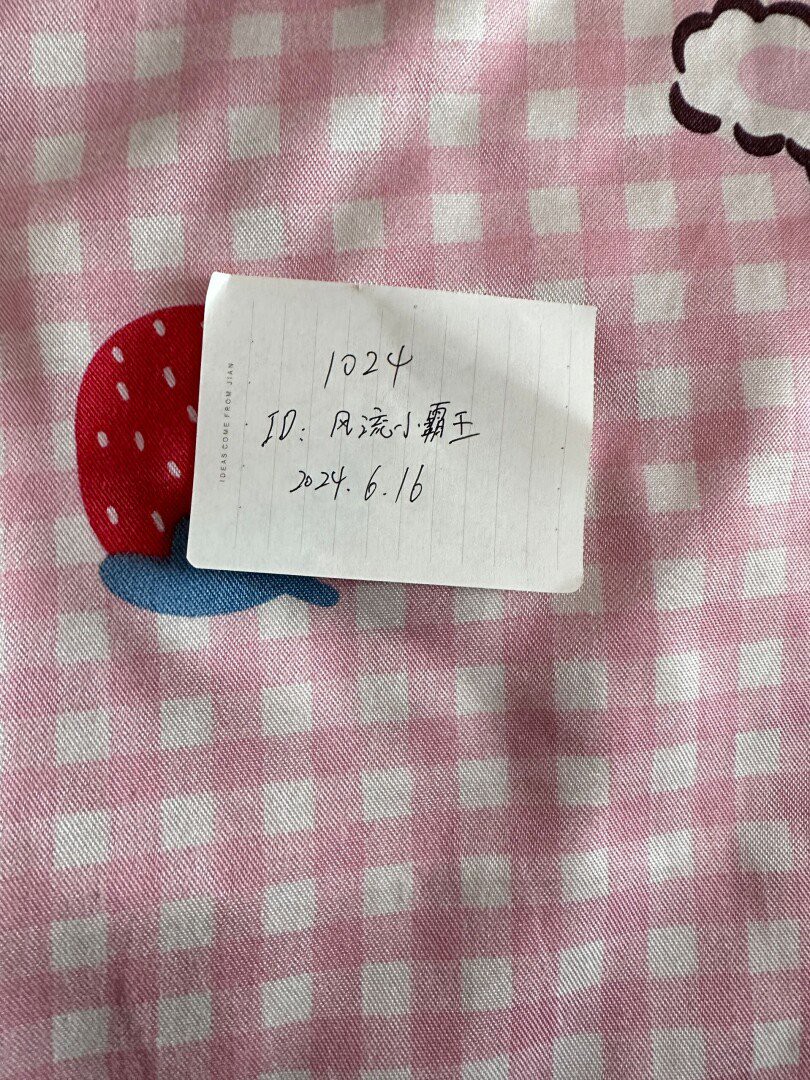 1024
ID: 风流小霸王
2024.6.16
IDEAS COME FROM JIAN